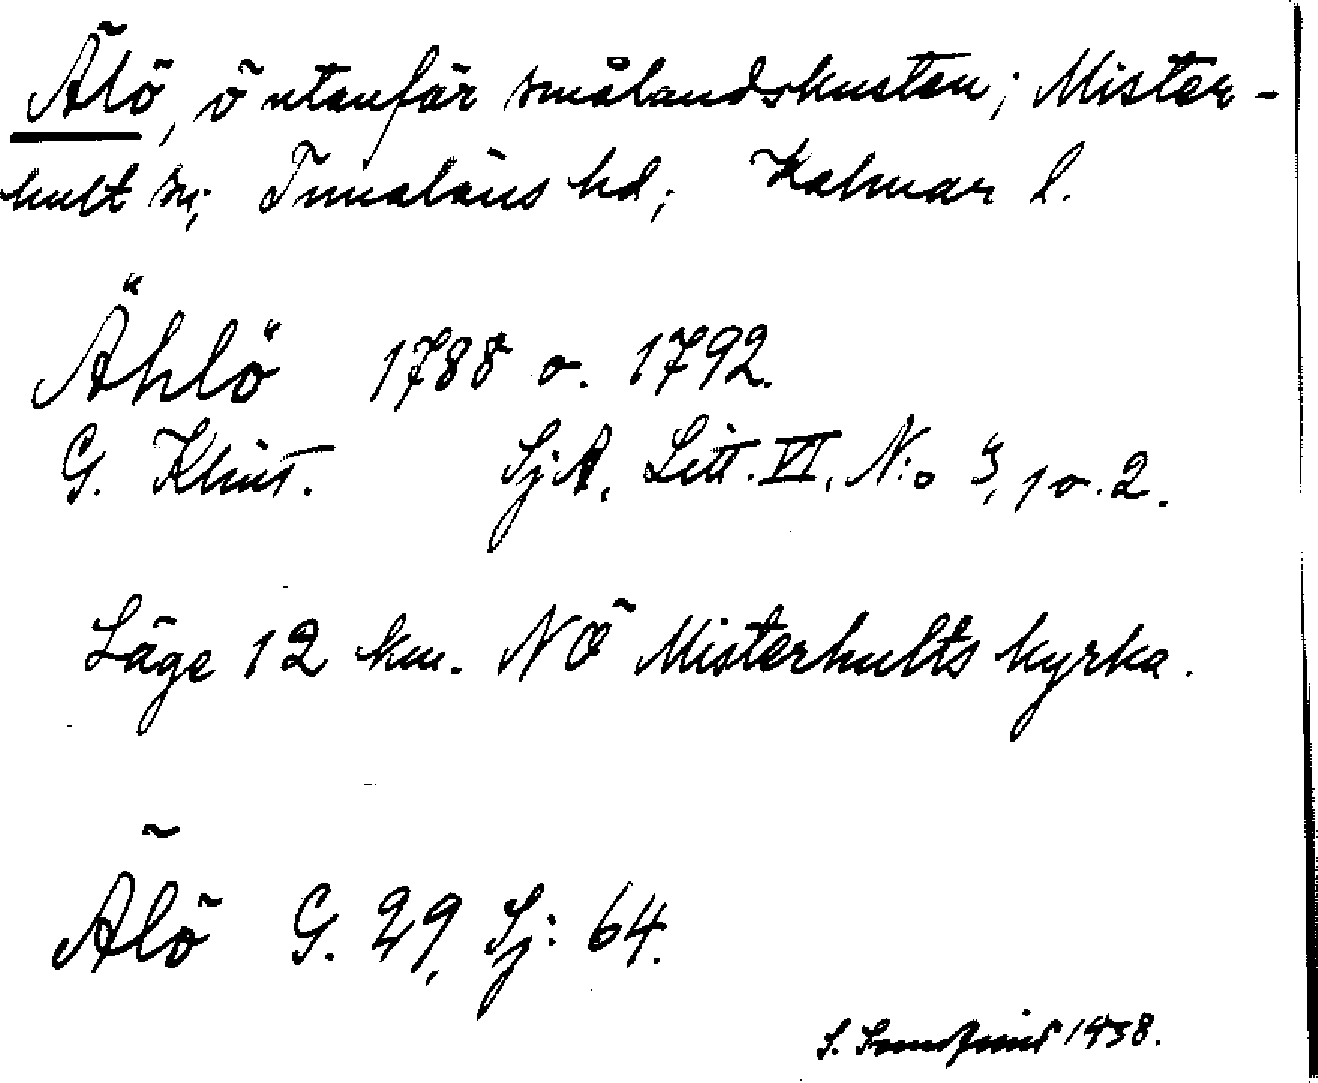 Älö, ö utanför smålandskusten; Mister-
hult sn; Tunaläns hd; Kalmar l.
Ählö 1788 o. 1792.
G. Klint. SjA. Litt. VI. N:o 3, 1 o. 2.
Läge 12 km. NÖ Misterhults kyrka.
Älö G. 29, Sj: 64.
S. 1938.